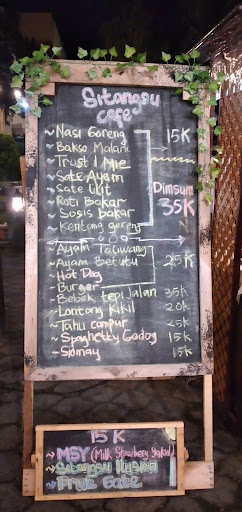 Sitangsu
cafe
~ Nasi Goreng
~ Bakso Malang 15K
~ Trust 1 Mie
~ Sate Ayam
~ Sate Lilit Dimsum
~ Roti Bakar 35K
~ Sosis bakar
~ Kentang goreng
~ Ayam Taliwang
~ Ayam Betutu 25K
~ Hot Dog
~ Burger
~ Bebek tepi Jalan 35K
~ Lontong Kikil 20K
~ Tahu campur 25K
~ Spaghetty Gadog 15K
~ Siomay 15K
15 K
~ MSY (Milk Strawberry Yakut)
~ Sitangsu Ilusion
~ Fruit Sate